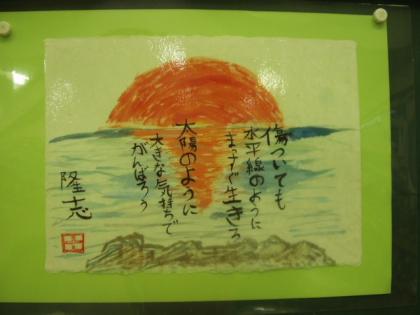 傷ついても
水平線のように
まっすぐ生きる
太陽のように
大きな気持ちで
がんばろう
隆志